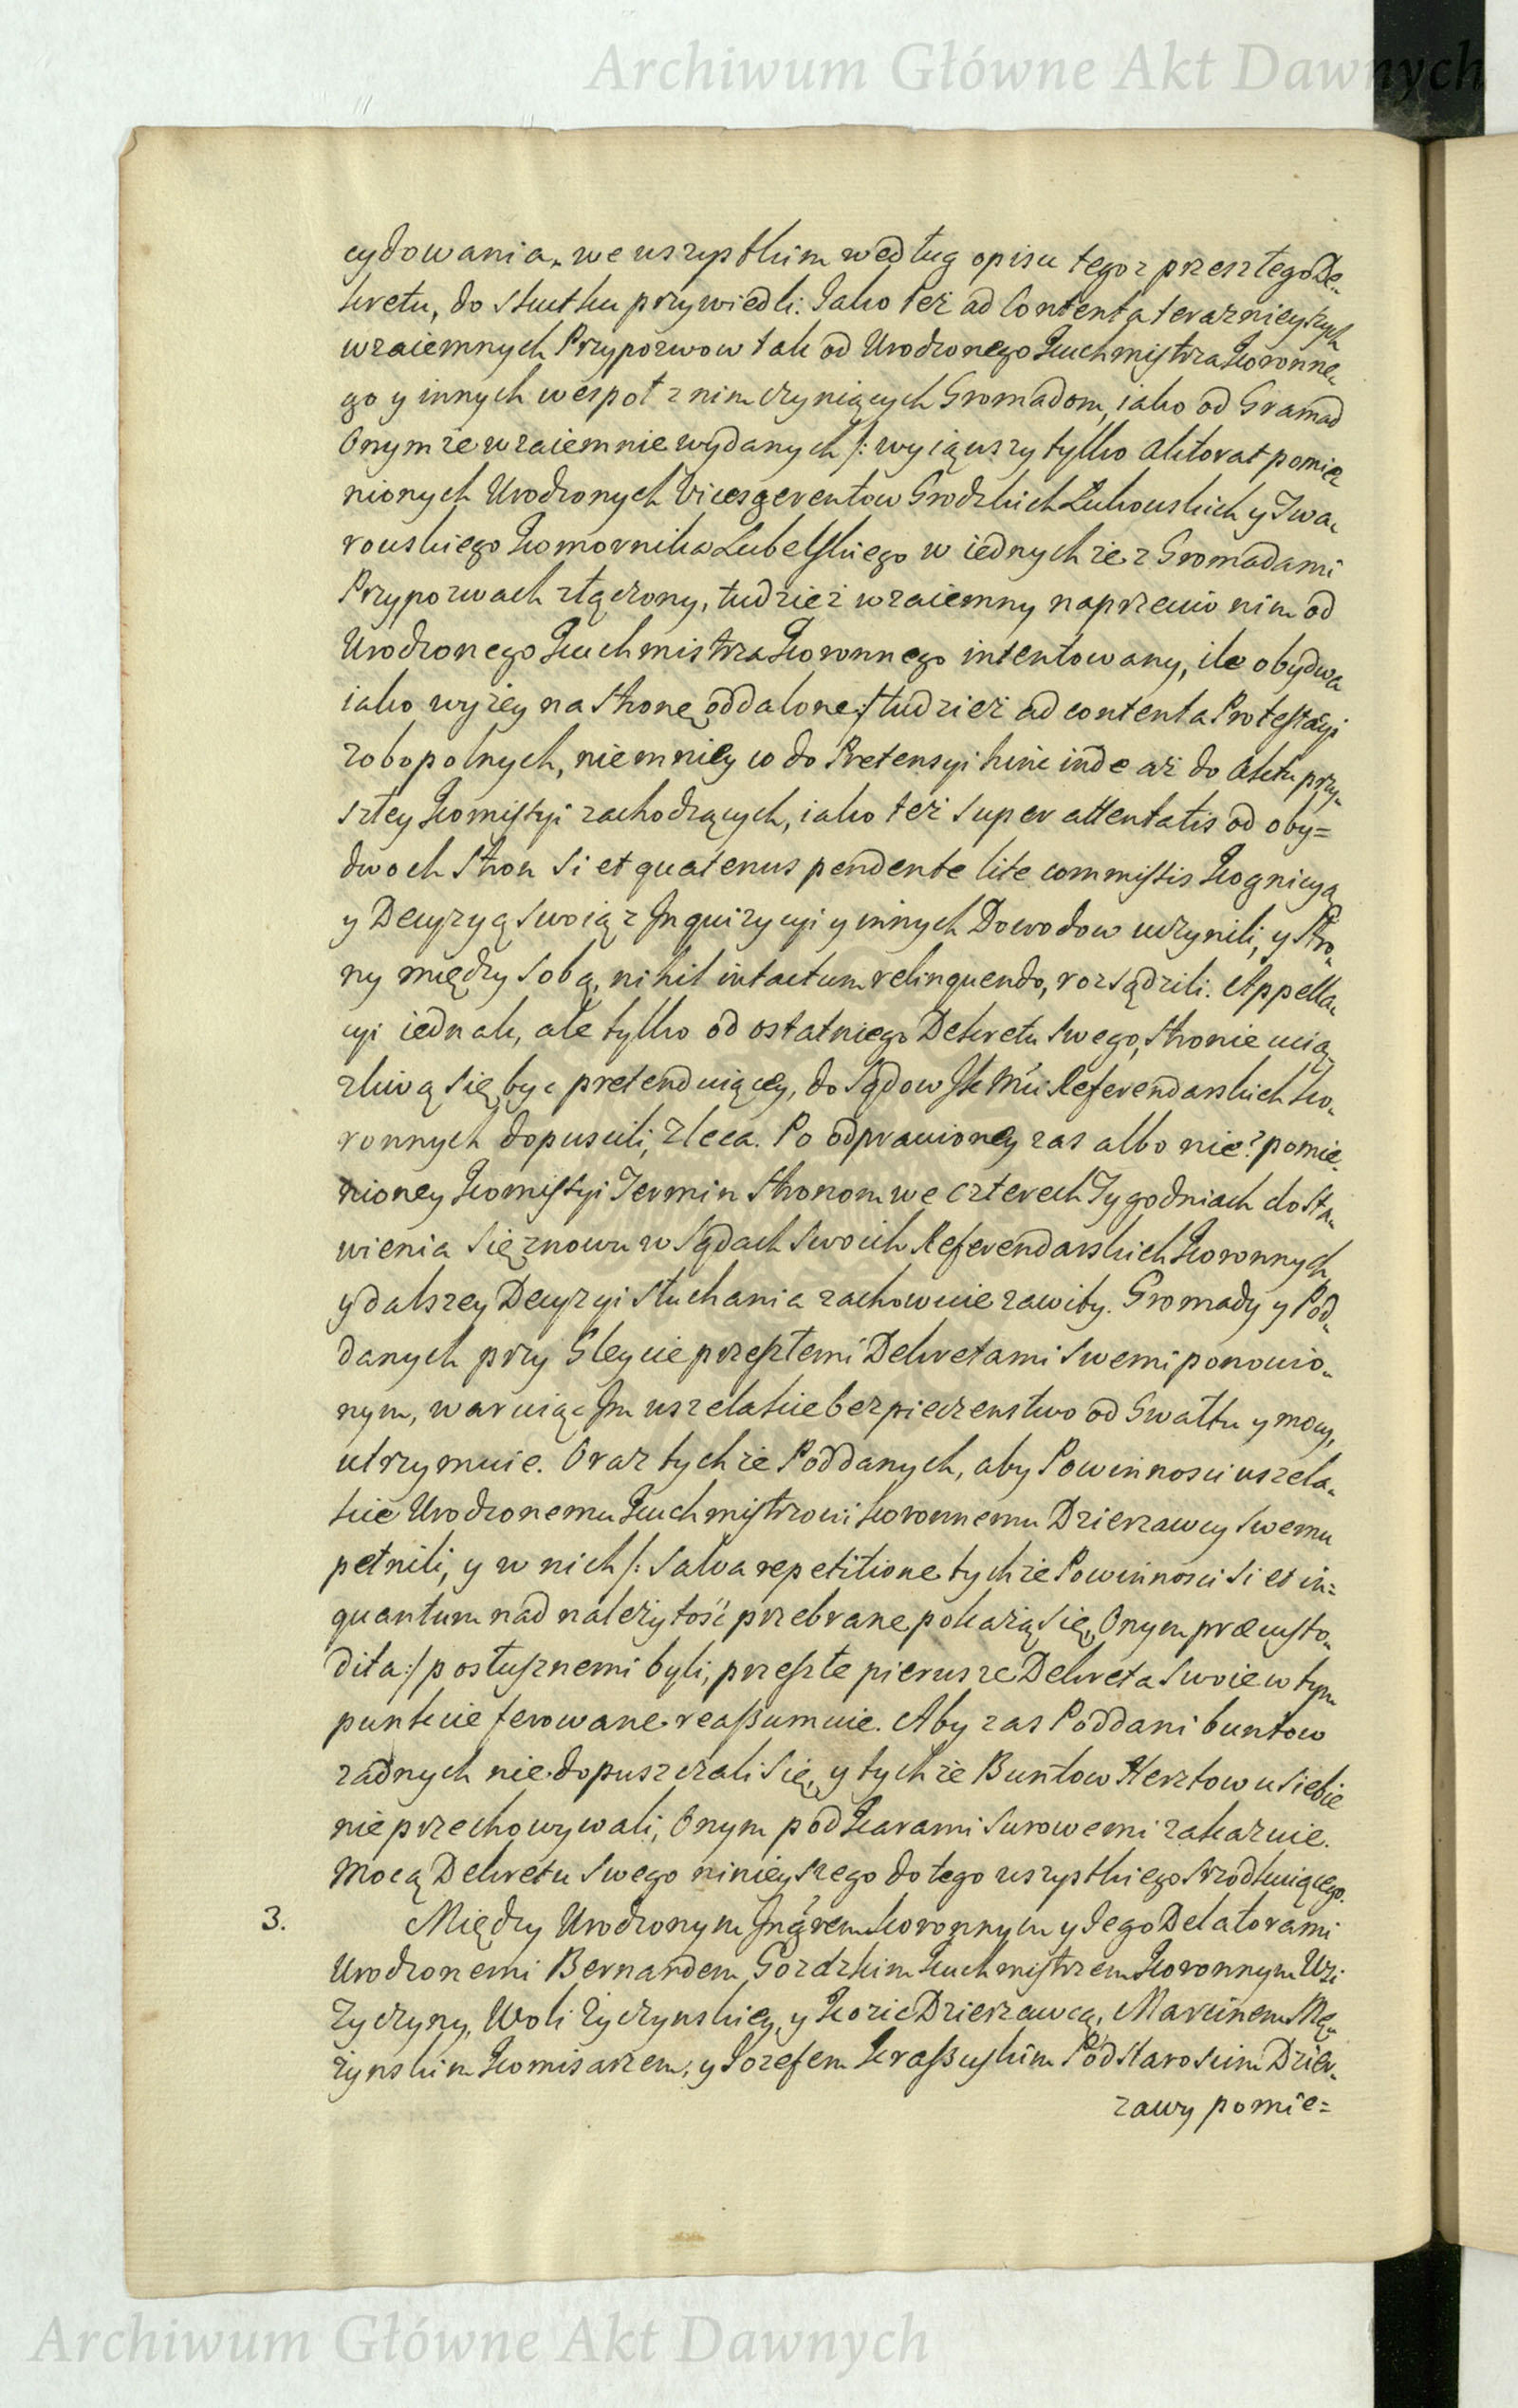 Archiwum Główne Akt Dawnych
cydowania, we wszystkim według opisu tegoz przeszłego De-
kretu, do skutku przywiedli. Jako też ad Contenta teraznieyszych
wzaiemnych Przypozwow tak od Urodzonego Kuchmistrza Koronne-
go y innych wespoł z nim czyniących Gromadom, iako od Gramad
Onymze wzaiemnie wydanych /: wyiąwszy tylko Aktorat pomie
nionych Urodzonych Vicesgerentow Grodzkich Łukowskich y Iwa-
rowskiego Komornika Lubelskiego w iednychze z Gromadami
Przypozwach złączony, tudzież wzaiemny naprzeciw nim od
Urodzonego Kuchmistrza Koronnego intentowany, ile obydwa
iako wyżey na stronę oddalone :/ tudzież ad contenta Protestacyi
zobopolnych, niemniey co do Pretensyi hinc inde aż do Aktu przy-
szłey Komissyi zachodzących, iako też super attentatis od oby=
dwoch Stron si et quatenus pendente lite commissis Kognicyą
y Decyzyą swoią z Inquizycyi y innych Dowodow uczynili, y Stro-
ny między sobą, nihil intactum relinquendo, rozsądzili. Appella-
cyi iednak, ale tylko od ostatniego Dekretu swego, stronie ucią-
zliwą się byc pretenduiącey, do Sądow JK Mci Referendarskich Ko-
ronnych dopuscili, Zleca. Po odprawioney zas albo nie? pomie-
nioney Komissyi Termin stronom we czterech Tygodniach do sta-
wienia się znowu w Sądach swoich Referendarskich Koronnych
y dalszey Decyzyi słuchania zachowuie zawity. Gromady y Pod-
danych przy Gleycie przeszłemi Dekretami swemi ponowio-
nym, waruiąc Im wszelakie bezpieczenstwo od Gwałtu y mocy,
utrzymuie. Oraz tychze Poddanych, aby Powinnosci wszela-
kie Urodzonemu Kuchmistrzowi Koronnemu Dzierzawcy swemu
pełnili, y w nich /: salva repetitione tychże Powinnosci si et in=
quantum nad należytość przebrane pokażą się, Onym præcusto-
dita :/ posłusznemi byli, przeszłe pierwsze Dekreta swoie w tym
punkcie ferowane reassumuie. Aby zas Poddani buntow
zadnych niedopuszczali się, y tychże Buntow Hersztow u siebie
nie przechowywali, Onym pod Karami surowemi zakazuie.
Mocą Dekretu swego ninieyszego do tego wszystkiego srzodkuiącego.
3. Między Urodzonym Ingrem Koronnym y Jego Delatorami
Urodzonemi Bernardem Gozdzkim Kuchmistrzem Koronnym Wsi
Życzyny, Woli Życzynskiey, y Kozic Dzierzawcą, Marcinem Mę-
żynskim Komisarzem, y Jozefem Krassuskim Podstaroscim Dzier-
zawy pomie=
Archiwum Główne Akt Dawnych